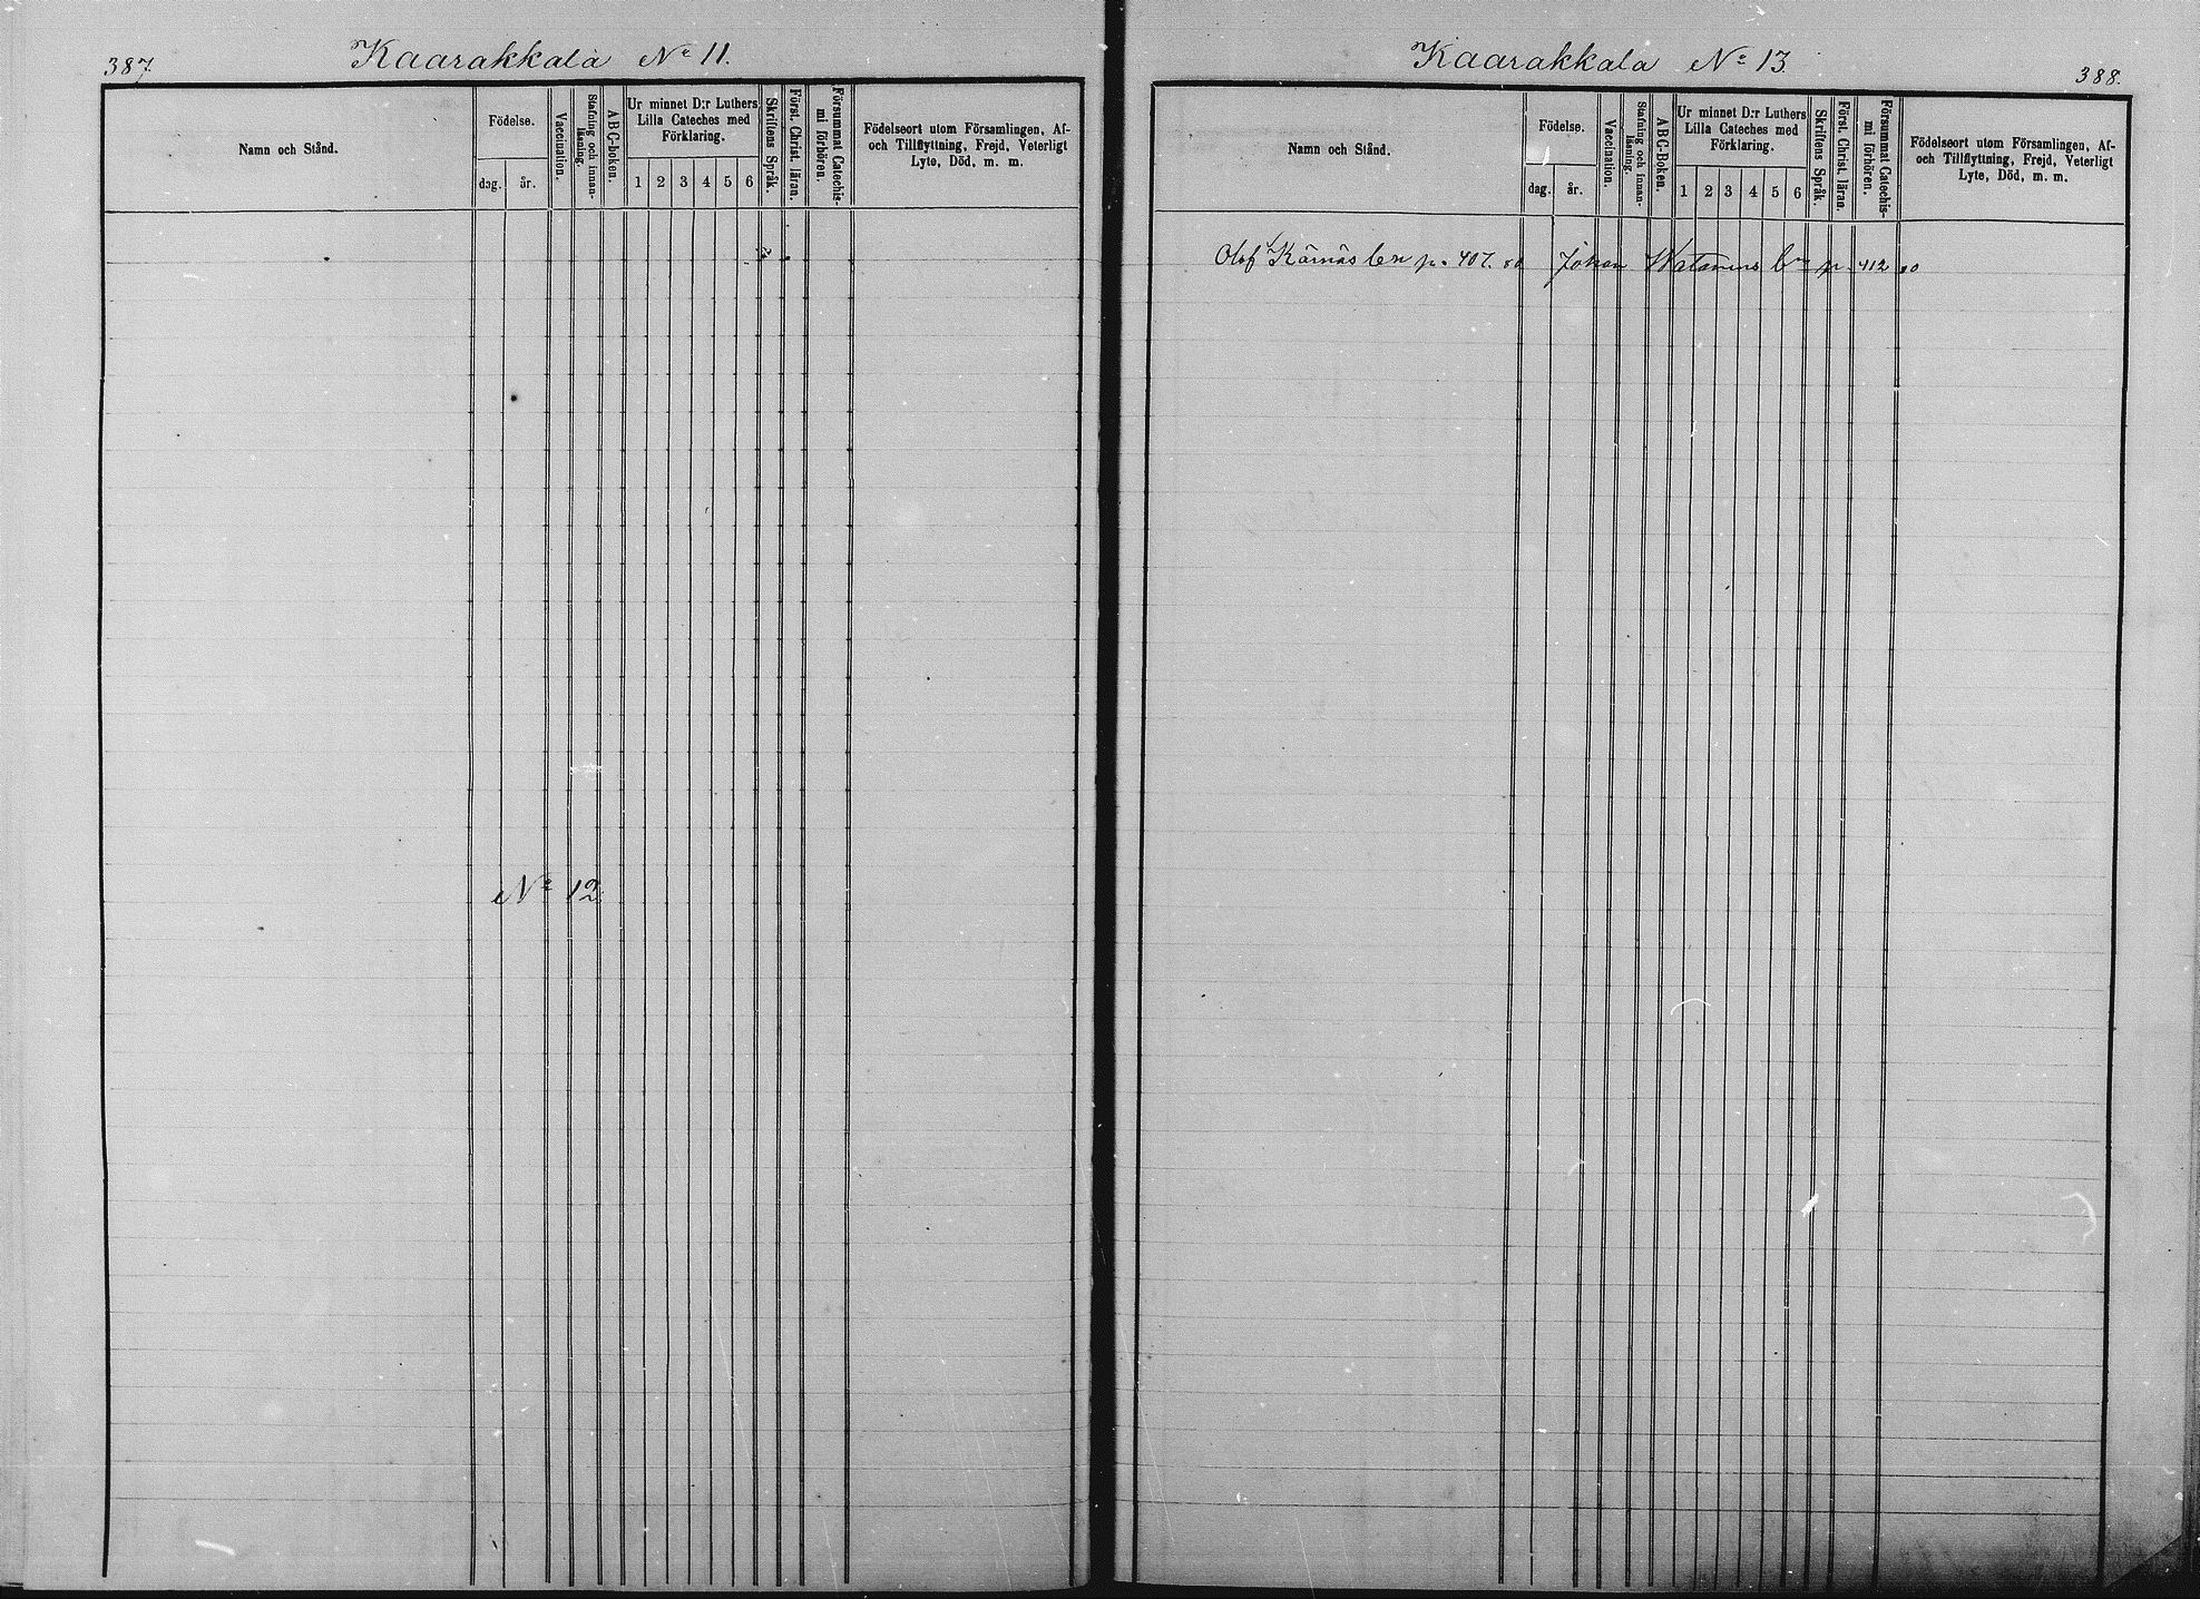 387.
Kaarakkala № 11.
Namn och Stånd.
Födelse.
dag.
år.
Vaccination.
Stafning och innan-
läsning.
ABC-boken.
Ur minnet D:r Luthers
Lilla Cateches med
Förklaring.
1 2 3 4 5 6
Skriftens Språk.
Först. Christ. läran.
Försummat Catechis-
mi förhören.
Födelseort utom Församlingen, Af-
och Tillflyttning, Frejd, Veterligt
Lyte, Död, m. m.
№ 12.
Kaarakkala № 13.
388.
Namn och Stånd.
Födelse.
dag.
år.
Vaccination.
Stafning och innan-
läsning.
ABC-Boken.
Ur minnet D:r Luthers
Lilla Cateches med
Förklaring.
1 2 3 4 5 6
Skriftens Språk.
Först. Christ. läran.
Försummat Catechis-
mi förhören.
Födelseort utom Församlingen, Af-
och Tillflyttning, Frejd, Veterligt
Lyte, Död, m. m.
Olof p. 407. Johan p. 412